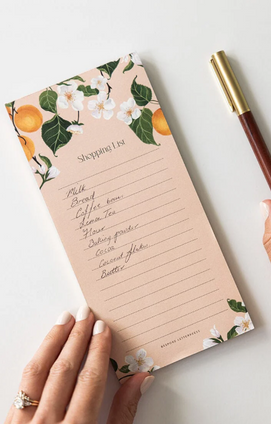 Shopping List
Milk
Bread
Coffee bean
Lemon Tea
Flour
Baking powder
Cocoa
Coconut flakes
Butter